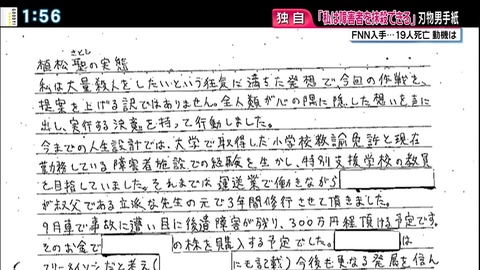 1:56
独自
「私は障害者を抹殺できる」刃物男手紙
FNN入手…19人死亡 動機は
さとし
植松聖の実態
私は大量殺人をしたいという狂気に満ちた発想で今回の作戦を、
提案を上げる訳ではありません。全人類が心の隅に隠した想いを声に
出し、実行する決意を持って行動しました。
今までの人生設計では、大学で取得した小学校教諭免許と現在
勤務している障害者施設での経験を生かし、特別支援学校の教員
を目指していました。それまでは運送業で働きながら
が叔父である立派な先生の元で3年間修行させて頂きました。
9月車で事故に遭い目に後遺障害が残り、300万円程頂ける予定です。
そのお金で の株を購入する予定でした。 は
フリーメイソンだと考え( にも記載)今後も更なる発展を信ん